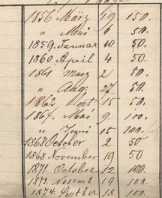 1856 März 19 150.
" Mai 6 50.
1859. Januar 10 50.
1860. April 4 50.
1861 März 2 80.
" Aug. 27 50.
1862 15 50.
1867. Mai 9 100.
" Juni 15 100.
1868 October 2 50
1868. November 19 50.
1871. October 12 100.
1873. 19 100.
1874. October 18 100.